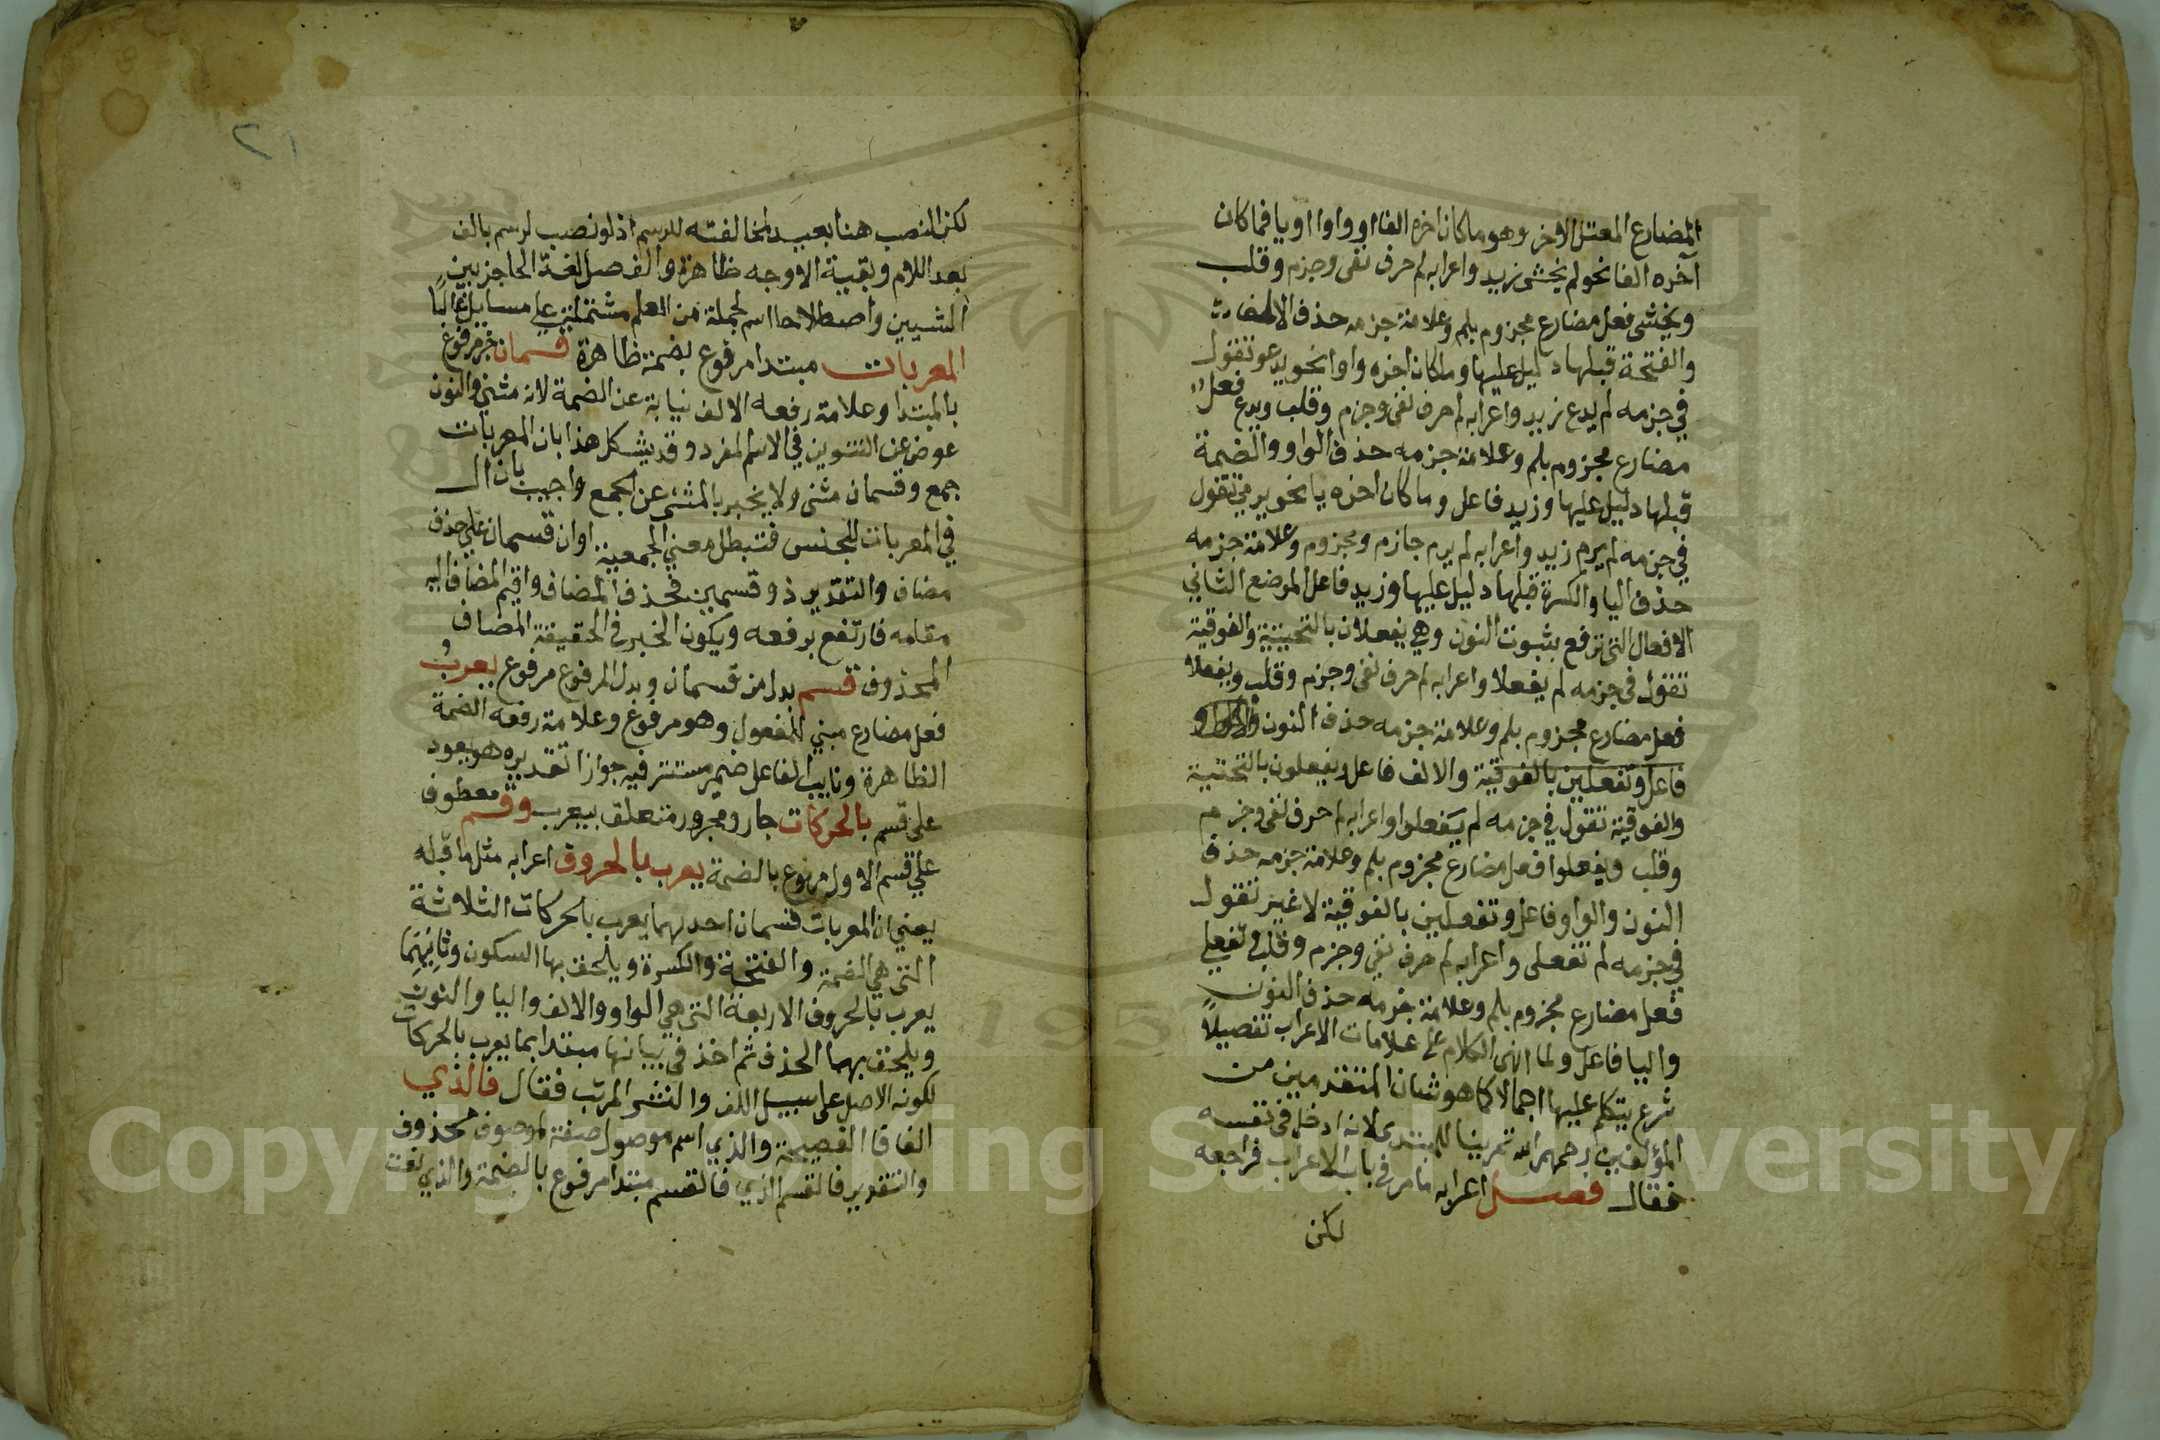 المضارع المعتل الاخر وهو ما كان اخره الفا او واوا او يا فما كان
آخره الفا نحو لم يخشى زيد واعرابه لم حرف نفى وجزم وقلب
ويخشى فعل مضارع مجزوم بلم وعلامة جزمه حذف الالف
والفتحة قبلها دليل عليها وما كان اخره واوا نحو يدعو تقول
في جزمه لم يدع زيد واعرابه لم حرف نفى وجزم وقلب ويدع فعل
مضارع مجزوم بلم وعلامة جزمه حذف الواو والضمة
قبلها دليل عليها وزيد فاعل وما كان اخره يا نحو يرمي تقول
في جزمه لم يرم زيد واعرابه لم يرم جازم ومجزوم وعلامة جزمه
حذف اليا والكسرة قبلها دليل عليها وزيد فاعل الموضع الثاني
الافعال التي ترفع بثبوت النون وهي يفعلان بالتحتية والفوقية
تقول في جزمه لم يفعلا واعرابه لم حرف نفى وجزم وقلب ويفعلا
فعل مضارع مجزوم بلم وعلامة جزمه حذف النون
فاعل وتفعلين بالفوقية والالف فاعل ويفعلون بالتحتية
والفوقية تقول في جزمه لم يَفعلوا واعرابه لم حرف نفى وجزم
وقلب ويفعلوا فعل مضارع مجزوم بلم وعلامة جزمه حذف
النون والواو فاعل وتفعلين بالفوقية لا غير تقول
في جزمه لم تفعلى واعرابه لم حرف نفي وجزم وقلب وتفعلي
فعل مضارع مجزوم بلم وعلامة جزمه حذف النون
واليا فاعل ولما انهى الكلام على علامات الاعراب تفصيلاً
شرع يتكلم عليها اجمالا كما هو شان المتقدمين من
المؤلفين رحمهم الله تمرينا للمبتدى لانه ادخل في نفسه
فقال فصل اعرابه ما مر في باب الاعراب فراجعه
لكن
٢١
لكن النصب هنا بعيد لمخالفته للرسم اذ لو نصب لرسم بالف
بعد اللام وبقية الاوجه ظاهرة والفصل لغة الحاجز بين
الشيين واصطلاحا اسم لجملة من العلم مشتملة على مسايل غالبًا
المعربات مبتدا مرفوع بضمة ظاهرة قسمان خبر مرفوع
بالمبتدا وعلامة رفعه الالف نيابة عن الضمة لانه مثنى والنون
عوض عن التنوين في الاسم المفرد وقد يشكل هذا بان المعربات
جمع وقسمان مثنى ولا يخبر بالمثنى عن الجمع واجيب بان ال
في المعربات للجنس فتبطل معني الجمعية او ان قسمان علي حذف
مضاف والتقدير ذو قسمين فحذف المضاف واقيم المضاف اليه
مقامه فارتفع برفعه ويكون الخبر في الحقيقة المضاف
المحذوف قسم بدل من قسمان وبدل المرفوع مرفوع يعربُ
فعل مضارع مبني للمفعول وهو مرفوع وعلامة رفعه الضمة
الظاهرة ونايب الفاعل ضمير مستتر فيه جوازا تقديره هو يعود
على قسم بالحركات جار ومجرور متعلق بيعرب وقسم معطوف
علي قسم الاول مرفوع بالضمة يعرب بالحروف اعرابه مثل ما قبله
يعني ان المعربات قسمان احدهما يعرب بالحركات الثلاثة
التي هي الضمة والفتحة والكسرة ويلحق بها السكون وثانيهما
يعرب بالحروف الاربعة التي هي الواو والالف واليا والنون
ويلحق بهما الحذف ثم اخذ في بيانها مبتدا بما يعرب بالحركات
لكونه الاصل على سبيل اللف والنشر المرتب فقال فالذي
الفا فا الفصيحة والذي اسم موصول صفة لموصوف محذوف
والتقدير فالقسم الذي فالقسم مبتدا مرفوع بالضمة والذي نعت
Copyright © King Saud University